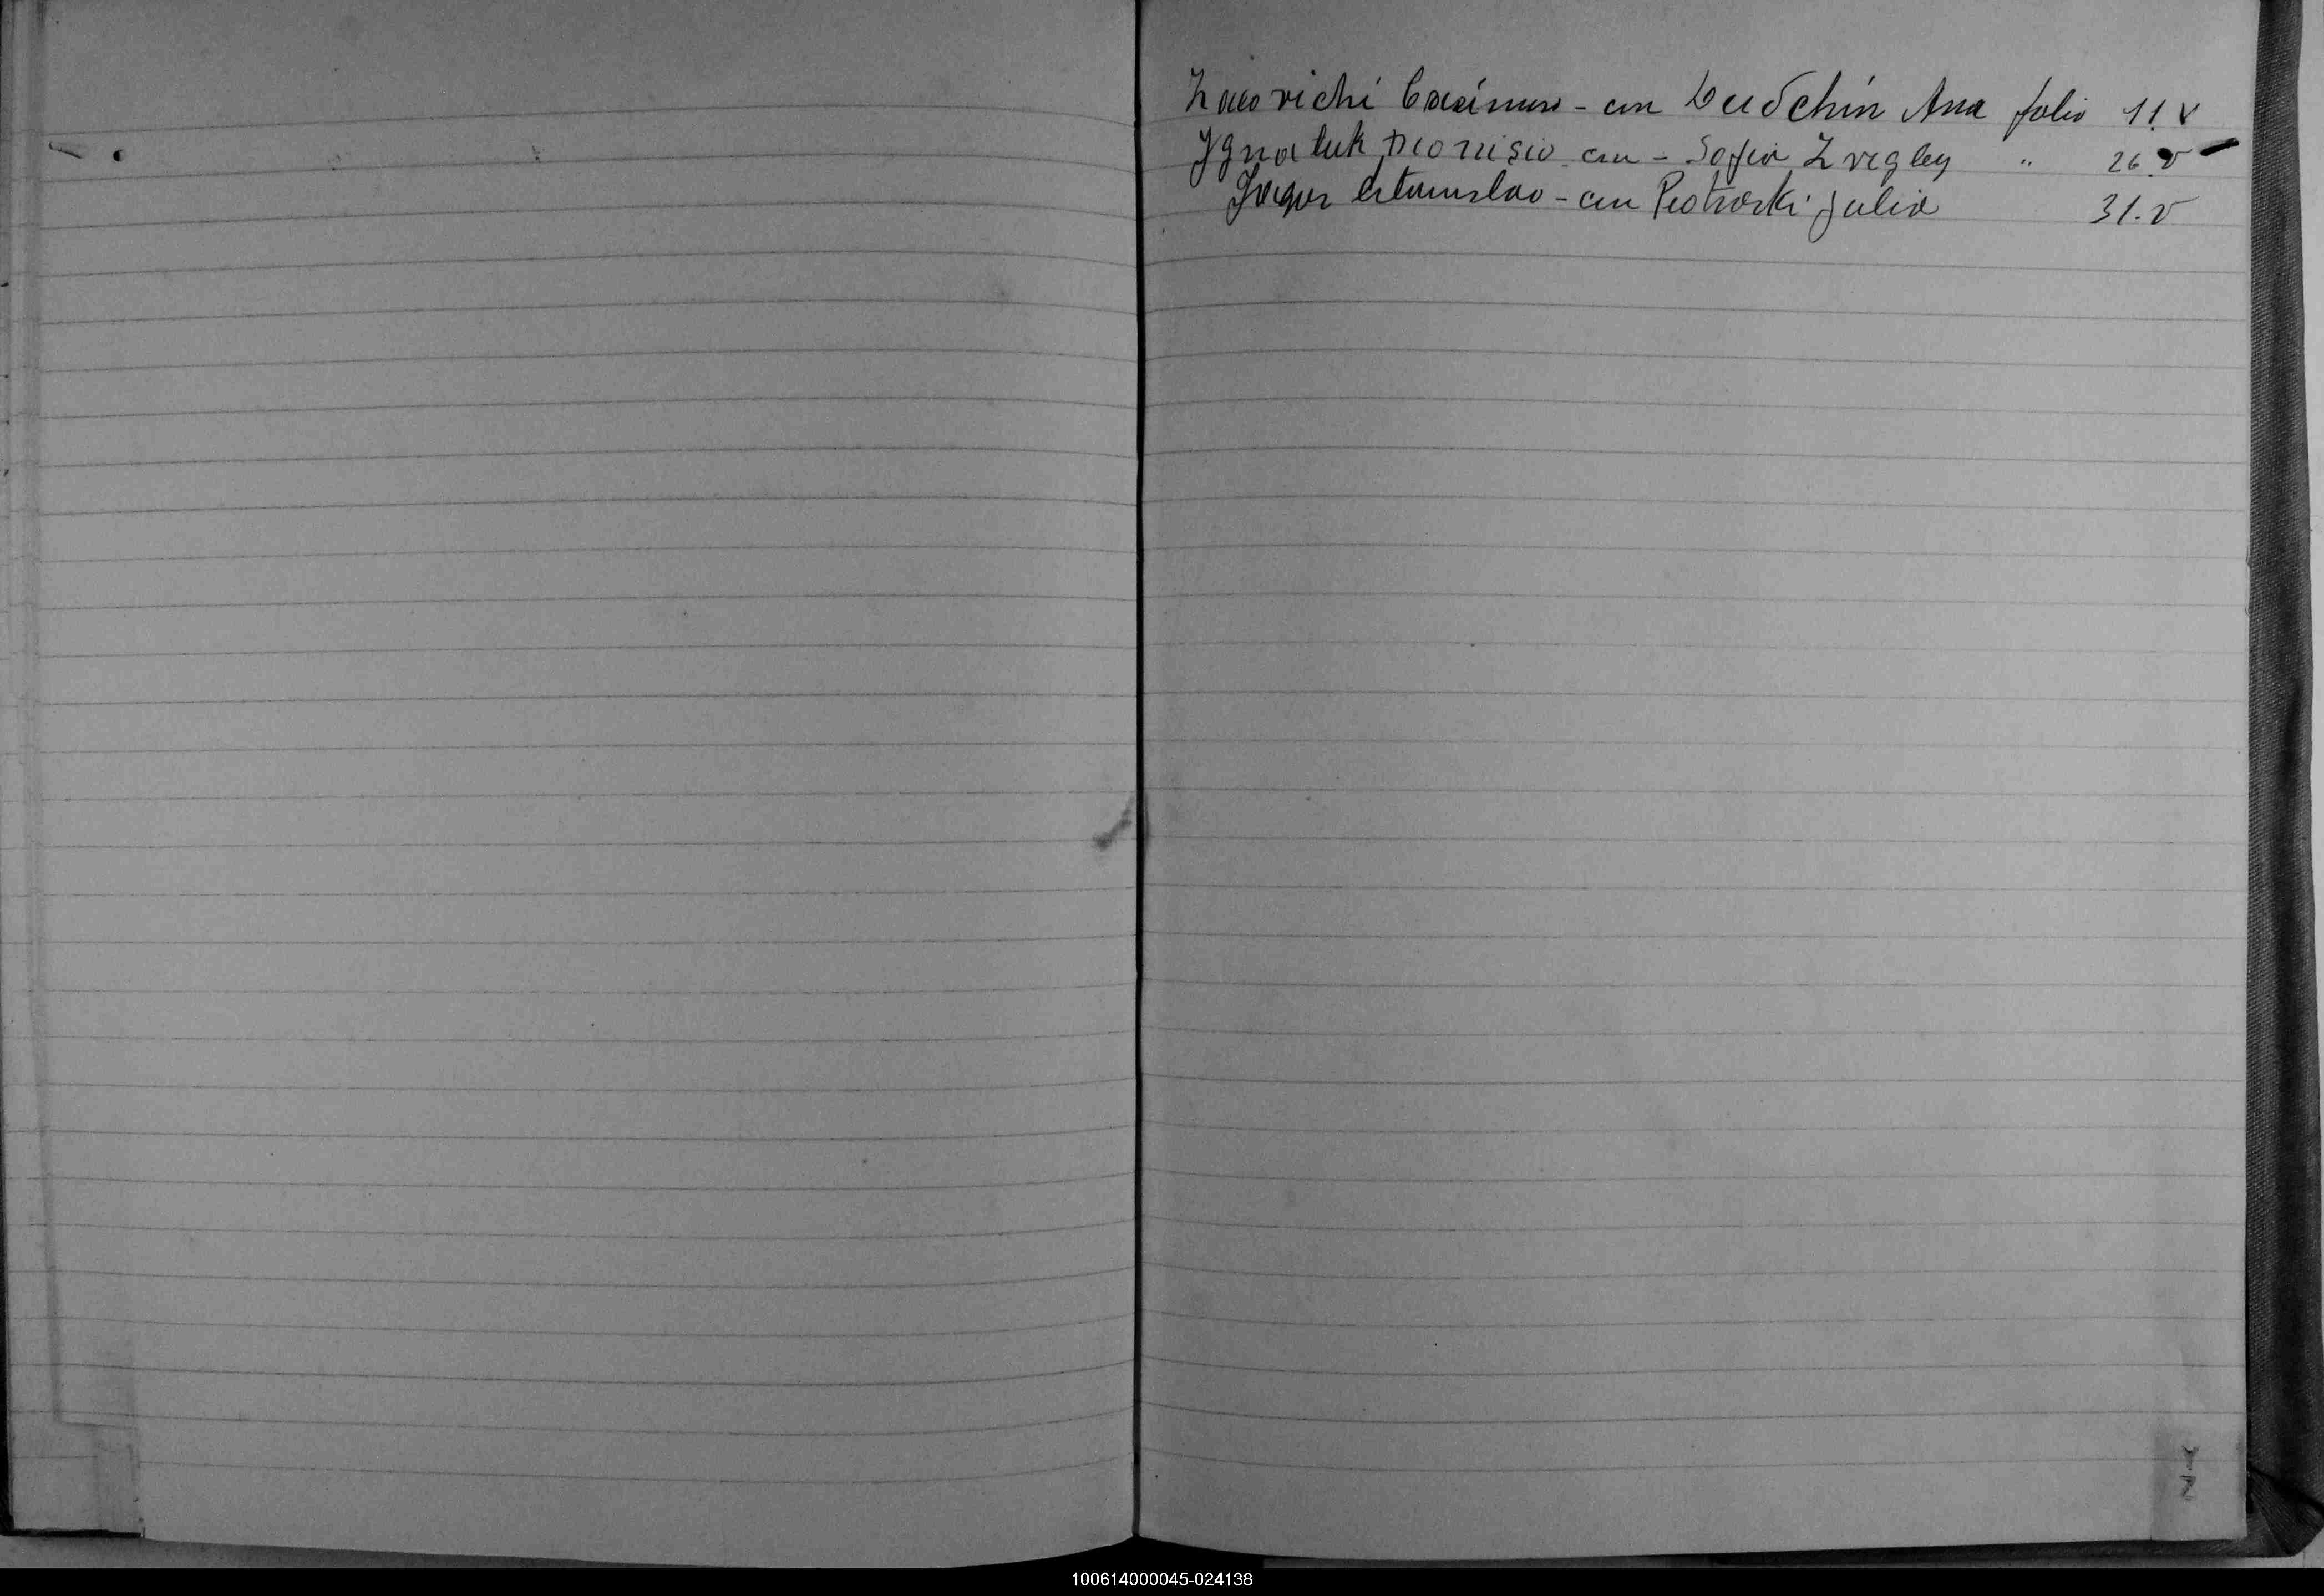 Casimiro - con Dudchin Ana folio 11. v
Ygnatuk Dionisio con - Sofia Zvigley " 26. v
Estanislao - con Piotroski Julia 31. v
Y
Z
100614000045-024138